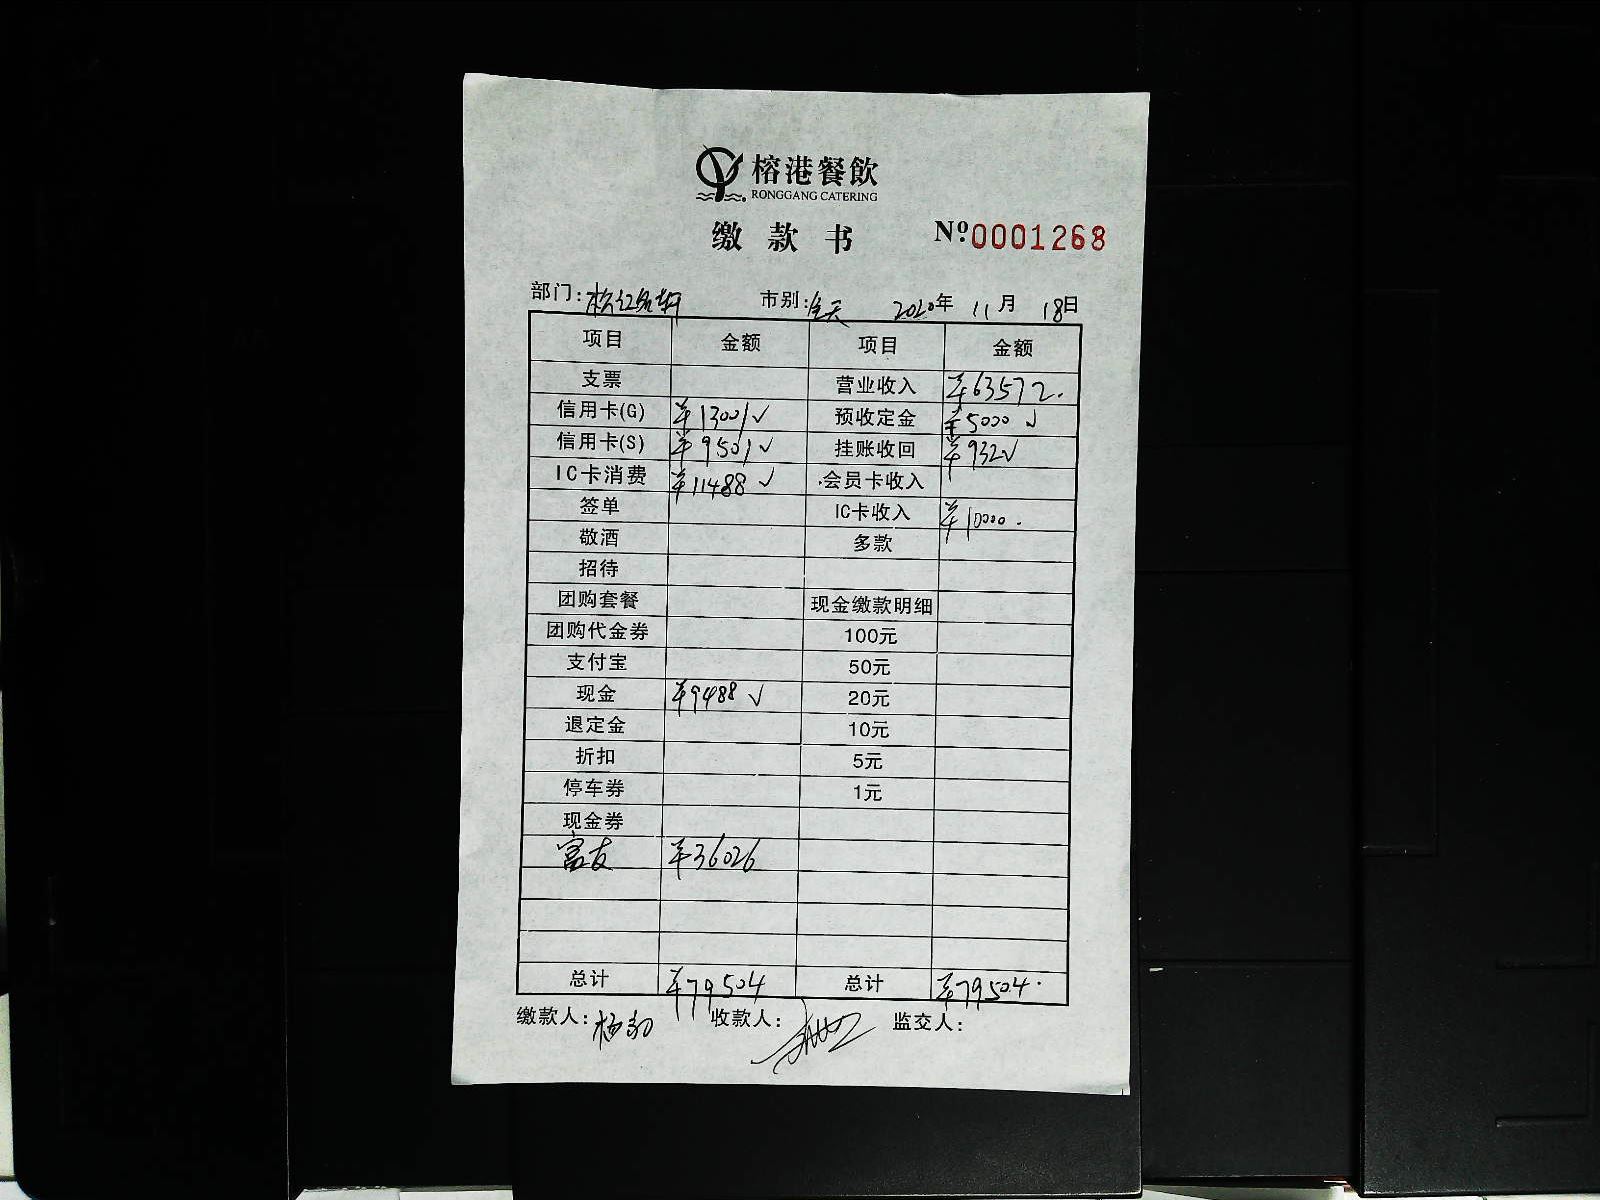 榕港餐飲
RONGGANG CATERING
缴款书 Nº 0001268
部门: 市别:全天 2020年 11月 18日
项目 金额 项目 金额
支票 营业收入 ¥63572.
信用卡(G) ¥13001✓ 预收定金 ¥5000 ✓
信用卡(S) ¥9501✓ 挂账收回 ¥932✓
IC卡消费 ¥11488 ✓ 会员卡收入
签单 IC卡收入 ¥10000.
敬酒 多款
招待
团购套餐 现金缴款明细
团购代金券 100元
支付宝 50元
现金 ¥9488 ✓ 20元
退定金 10元
折扣 5元
停车券 1元
现金券
富友 ¥36026
总计 ¥79504 总计 ¥79504.
缴款人: 收款人: 监交人: